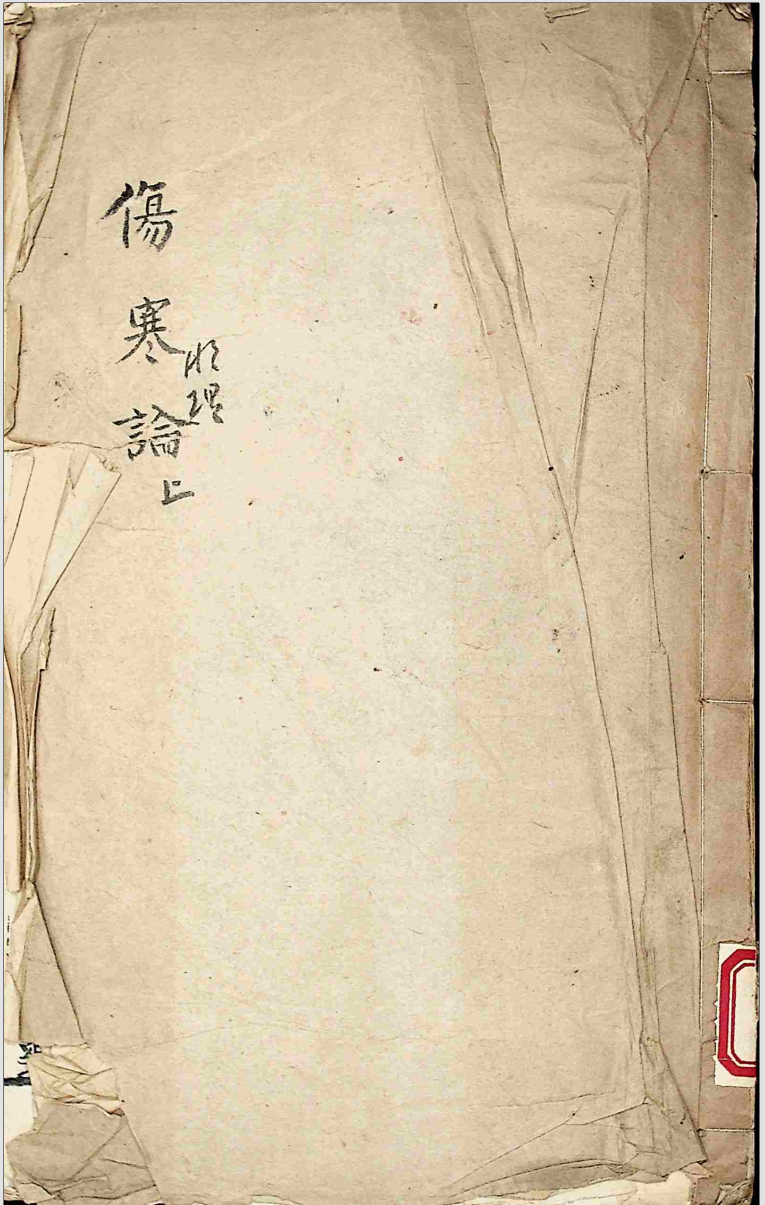 傷寒論
理
上